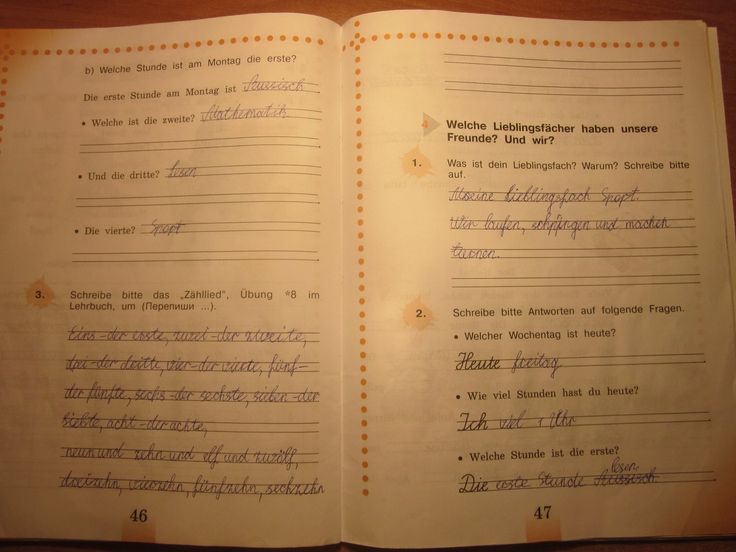 b) Welche Stunde ist am Montag die erste?
Die erste Stunde am Montag ist Russisch
• Welche ist die zweite? Mathematik
• Und die dritte? Lesen
• Die vierte? Sport
3. Schreibe bitte das „Zähllied", Übung *8 im
Lehrbuch, um (Перепиши ...).
Eins-der erste, zwei-der zweite,
drei-der dritte, vier-der vierte, fünf-
der fünfte, sechs-der sechste, sieben-der
siebte, acht-der achte,
neun und zehn und elf und zwölf,
dreizehn, vierzehn, fünfzehn, sechzehn
46
Welche Lieblingsfächer haben unsere
Freunde? Und wir?
1. Was ist dein Lieblingsfach? Warum? Schreibe bitte
auf.
Meine Lieblingsfach Sport.
Wir laufen, und machen
turnen.
2. Schreibe bitte Antworten auf folgende Fragen.
• Welcher Wochentag ist heute?
Heute freitag
• Wie viel Stunden hast du heute?
Ich viel 1 Uhr
• Welche Stunde ist die erste?
lesen
Die erste Stunde Russisch
47